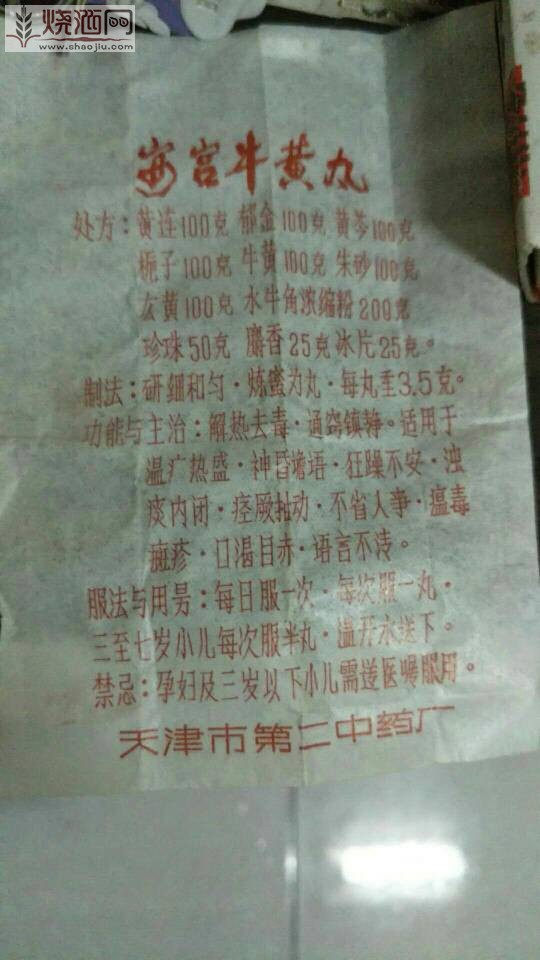 烧酒网
www.shaojiu.com
安宫牛黄丸
处方：黄连100克 郁金100克 黄芩100克
栀子100克 牛黄100克 朱砂100克
厷黄100克 水牛角浓缩粉200克
珍珠50克 麝香25克冰片25克。
制法：研细和匀·炼蜜为丸·每丸至3.5克。
功能与主治：解热去毒·通窍镇静。适用于
温疒热盛·神昏谵语·狂躁不安·浊
痰内闭·痉厥抽动·不省人事·瘟毒
斑疹·口渴目赤·语言不清。
服法与用量：每日服一次·每次服一丸·
三至七岁小儿每次服半丸·温开水送下。
禁忌：孕妇及三岁以下小儿需遵医嘱服用。
天津市第二中药厂